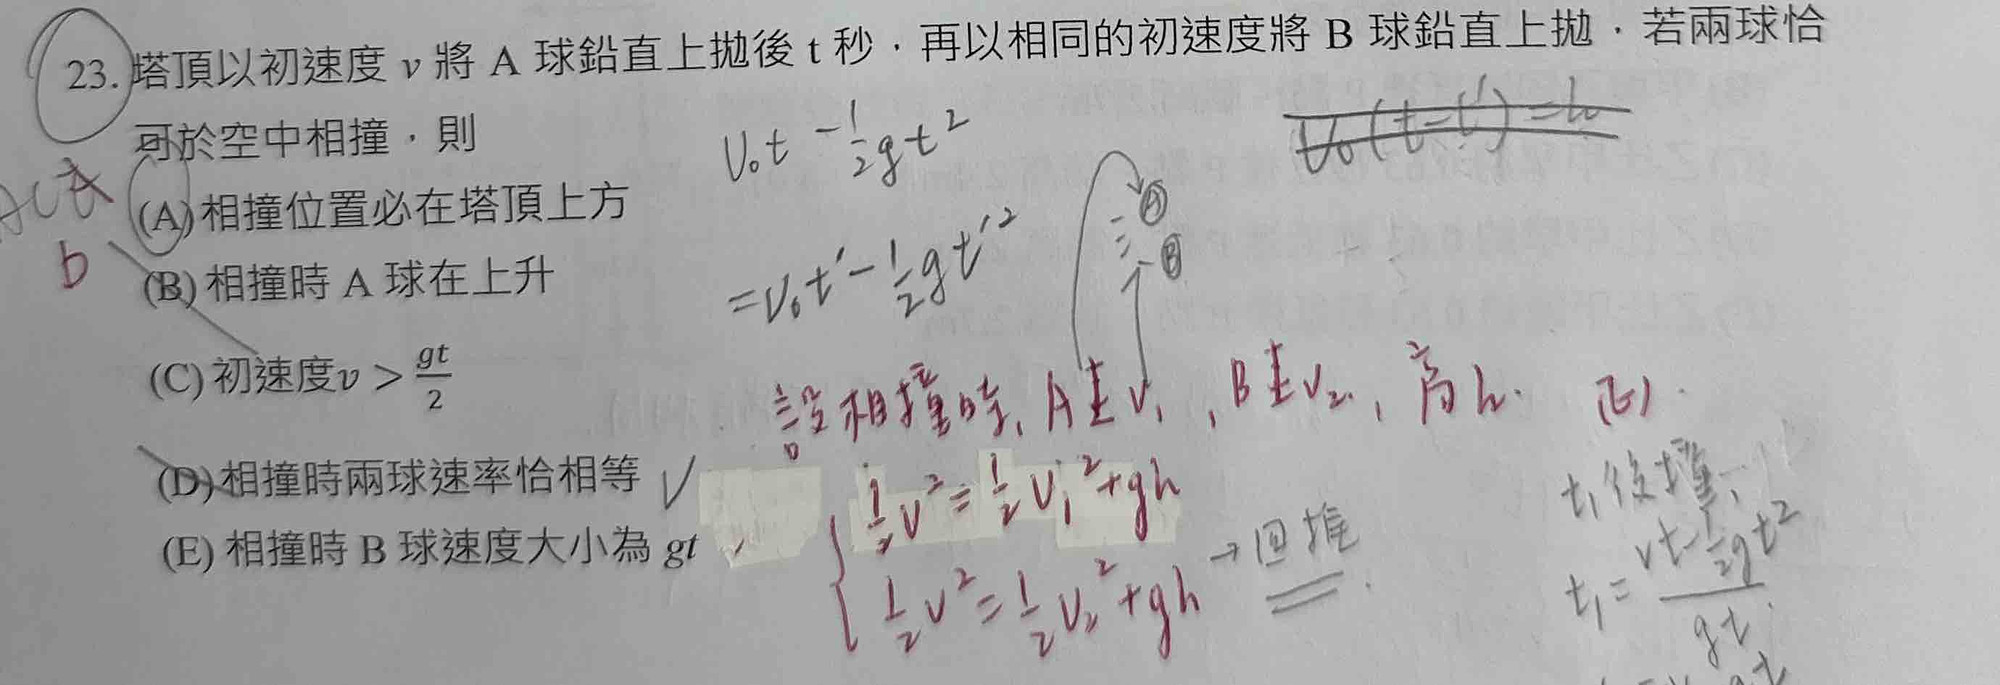 23. 塔頂以初速度 v 將 A 球鉛直上拋後 t 秒，再以相同的初速度將 B 球鉛直上拋，若兩球恰
可於空中相撞，則
(A) 相撞位置必在塔頂上方
(B) 相撞時 A 球在上升
(C) 初速度v > gt/2
(D) 相撞時兩球速率恰相等 ✓
(E) 相撞時 B 球速度大小為 gt
b
V₀t - ½gt²
= V₀t' - ½gt'²
V₀(t-t')=h
A
B
設相撞時, A速V₁, B速V₂, 高h.
½V² = ½V₁² + gh
½V² = ½V₂² + gh
→回推
t₁後撞
t₁ = (vt - ½gt²)/gt